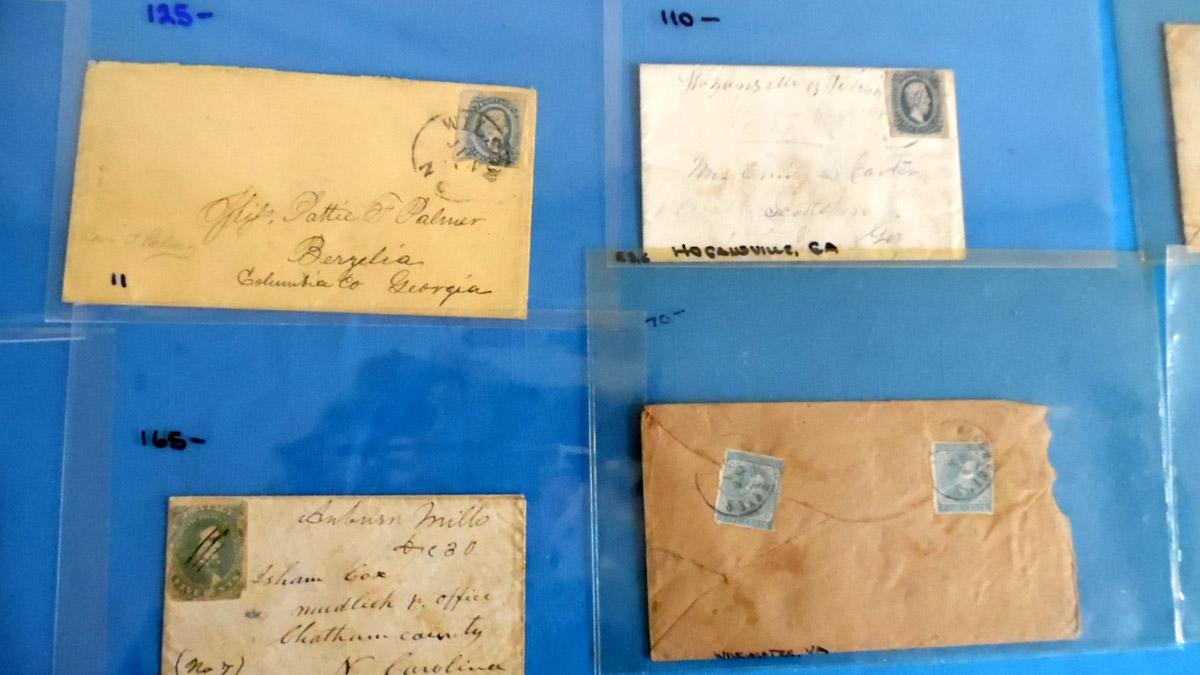 125-
Miss. Pattie F Palmer
Berzelia
Columbia Co Georgia
11
N
C
110-
Hogansville 13
Mrs Emily Carter
Geo
HOGANSVILLE, GA
165-
Auburn Mills
Dec 30
Isham Cox
mudlick P. office
Chatham county
(No 7) N Carolina
70-
WINCHESTER, VA